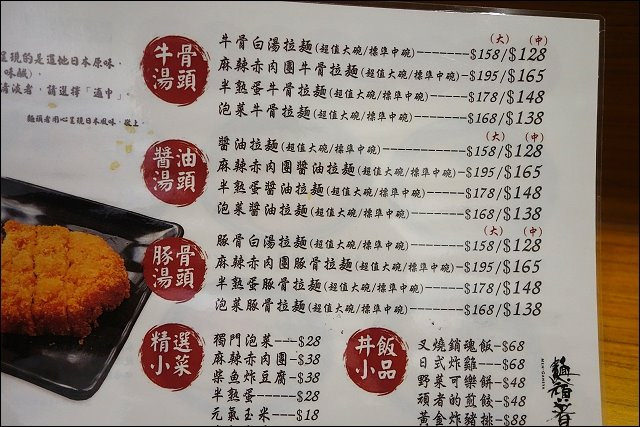 呈現的是道地日本原味，
味鹹)。
清淡者，請選擇「適中」。
麵頑者用心呈現日本風味，敬上。
牛骨湯頭
(大) (中)
牛骨白湯拉麵(超值大碗/標準中碗)--------$158/$128
麻辣赤肉團牛骨拉麵(超值大碗/標準中碗)-$195/$165
半熟蛋牛骨拉麵(超值大碗/標準中碗)------$178/$148
泡菜牛骨拉麵(超值大碗/標準中碗)--------$168/$138
醬油湯頭
(大) (中)
醬油拉麵(超值大碗/標準中碗)------------$158/$128
麻辣赤肉團醬油拉麵(超值大碗/標準中碗)--$195/$165
半熟蛋醬油拉麵(超值大碗/標準中碗)------$178/$148
泡菜醬油拉麵(超值大碗/標準中碗)--------$168/$138
豚骨湯頭
(大) (中)
豚骨白湯拉麵(超值大碗/標準中碗)--------$158/$128
麻辣赤肉團豚骨拉麵(超值大碗/標準中碗)-$195/$165
半熟蛋豚骨拉麵(超值大碗/標準中碗)------$178/$148
泡菜豚骨拉麵(超值大碗/標準中碗)--------$168/$138
精選小菜
獨門泡菜---$28
麻辣赤肉團-$38
柴魚炸豆腐-$38
半熟蛋-----$28
元氣玉米---$18
丼飯小品
叉燒銷魂飯-$68
日式炸雞---$68
野菜可樂餅-$48
頑者的煎餃-$48
黃金炸豬排-$88
麵頑者